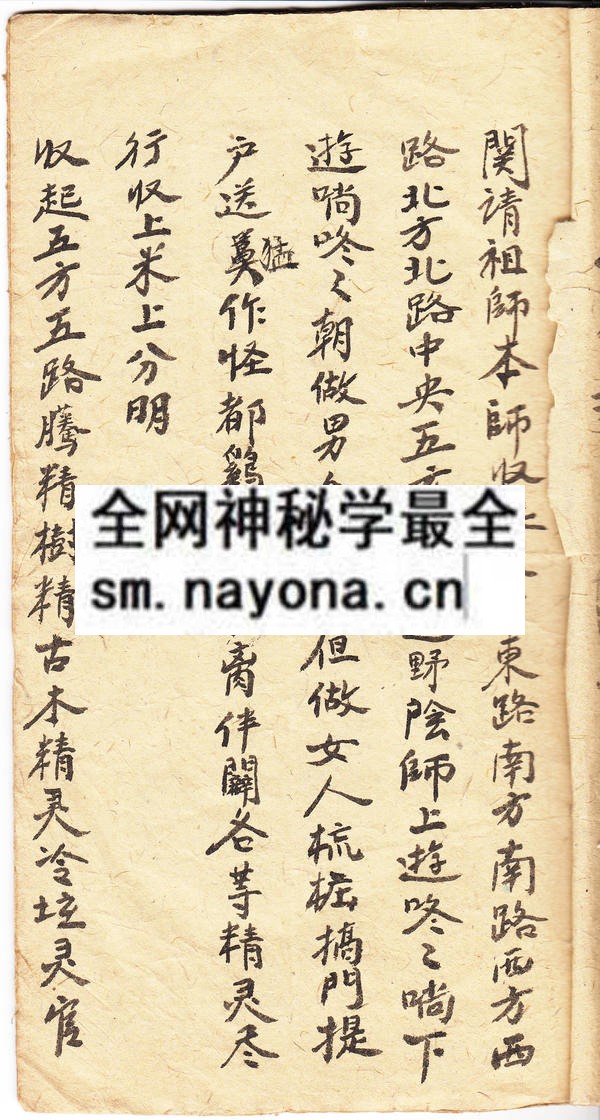 関請祖師本師收上東路南方南路西方西
路北方北路中央五方野陰師上遊咚〻啕下
遊啕咚〻朝做男但做女人梳桩搞門提
户送奠猛作怪都鷄伴關各等精灵尽
行収上米上分明
収起五方五路騰精樹精古木精灵冷坛灵官
全网神秘学最全
sm.nayona.cn